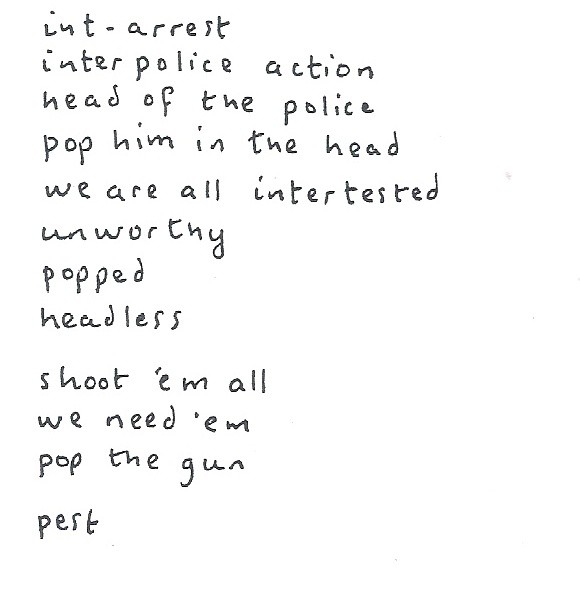 int-arrest
inter police action
head of the police
pop him in the head
we are all intertested
unworthy
popped
headless
shoot 'em all
we need 'em
pop the gun
pest